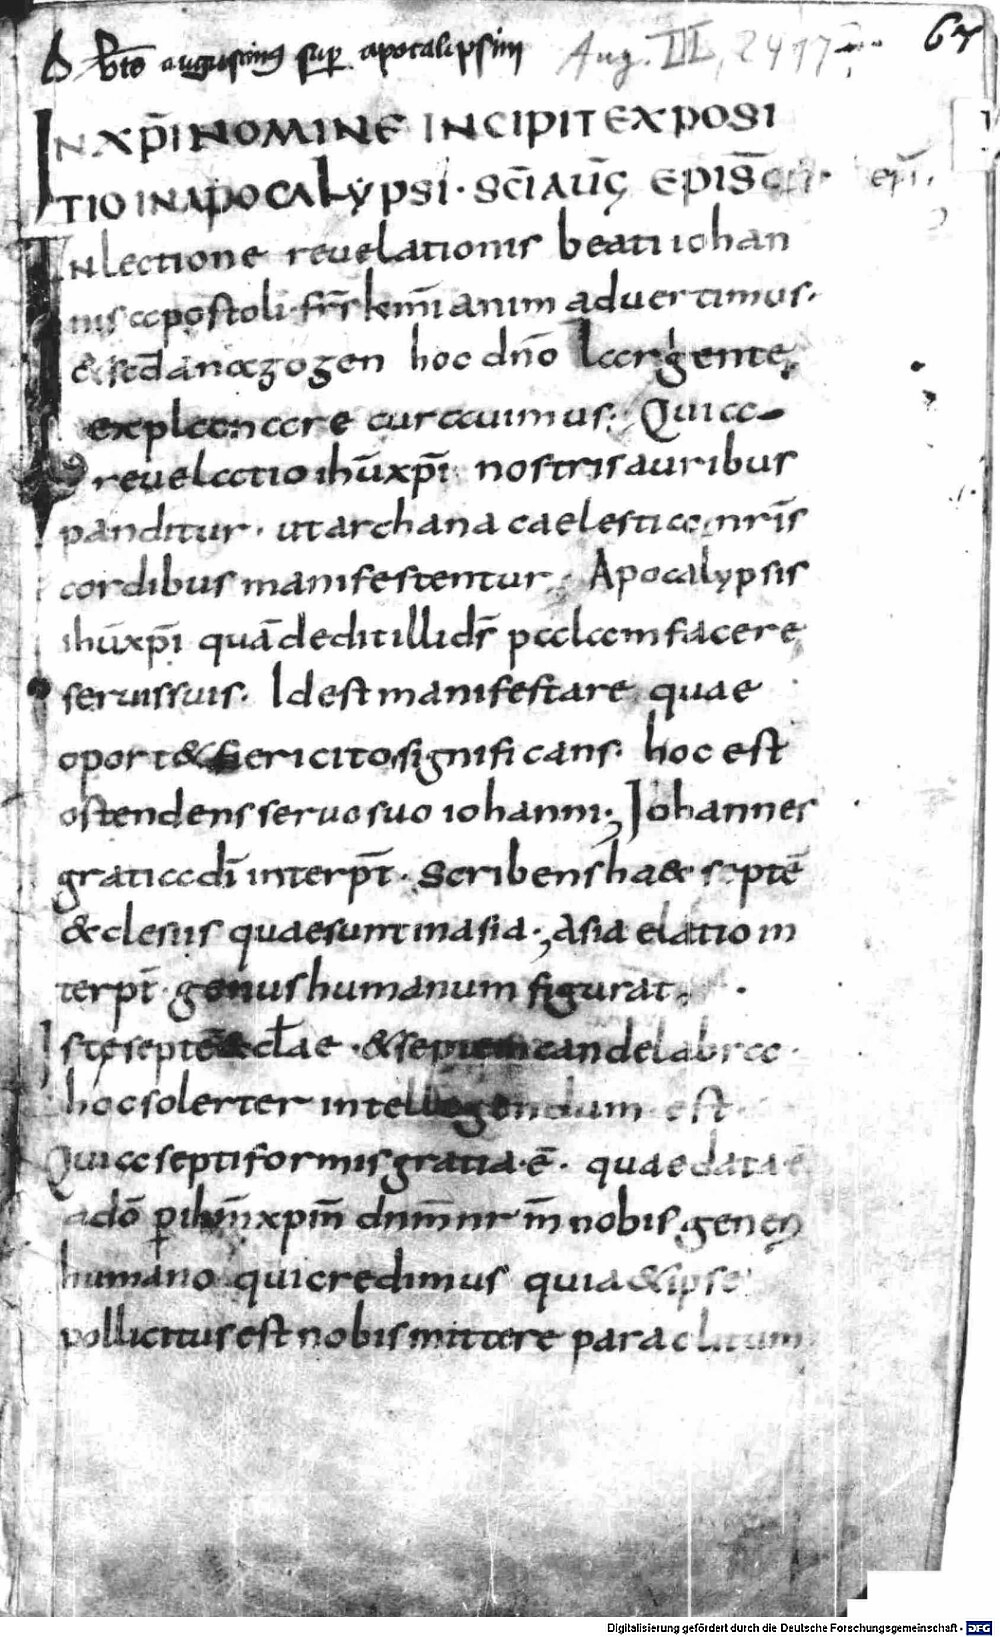 b̄ts augustinus sup̄ apocalipsim Aug. III, 2417 67
IN XP̄I NOMINE INCIPIT EXPOSI
TIO IN APOCALYPSI · SC̄I AUḠ EPISC̄ epī.
In lectione revelationis beati iohan
nis apostoli · fr̄s km̄i animadvertimus ·
& scd̄ anagogen hoc dn̄o largiente
explanare curavimus · Quia
revelatio ihū xp̄i nostris auribus
panditur · ut archana caelestia nr̄is
cordibus manifestentur · Apocalypsis
ihū xp̄i quā dedit illi ds̄ palam facere
servis suis · Id est manifestare quae
oport& fieri cito, significans · hoc est
ostendens servo suo iohanni · Iohannes
gratia dī interp̄t · Scribens ha& septē
&clesiis quae sunt in asia · Asia elatio in
terp̄t · genus humanum figurat ·
Iste septē &clae · & septem candelabra ·
hoc solerter intellegendum est ·
Quia septiformis gratia · ē · quae data ē
a dō p̄ ihm̄ xpm̄ dnm̄ nr̄m̄ nobis generi
humano · qui credimus quia & ipse
pollicitus est nobis mittere paraclitum
Digitalisierung gefördert durch die Deutsche Forschungsgemeinschaft - DFG